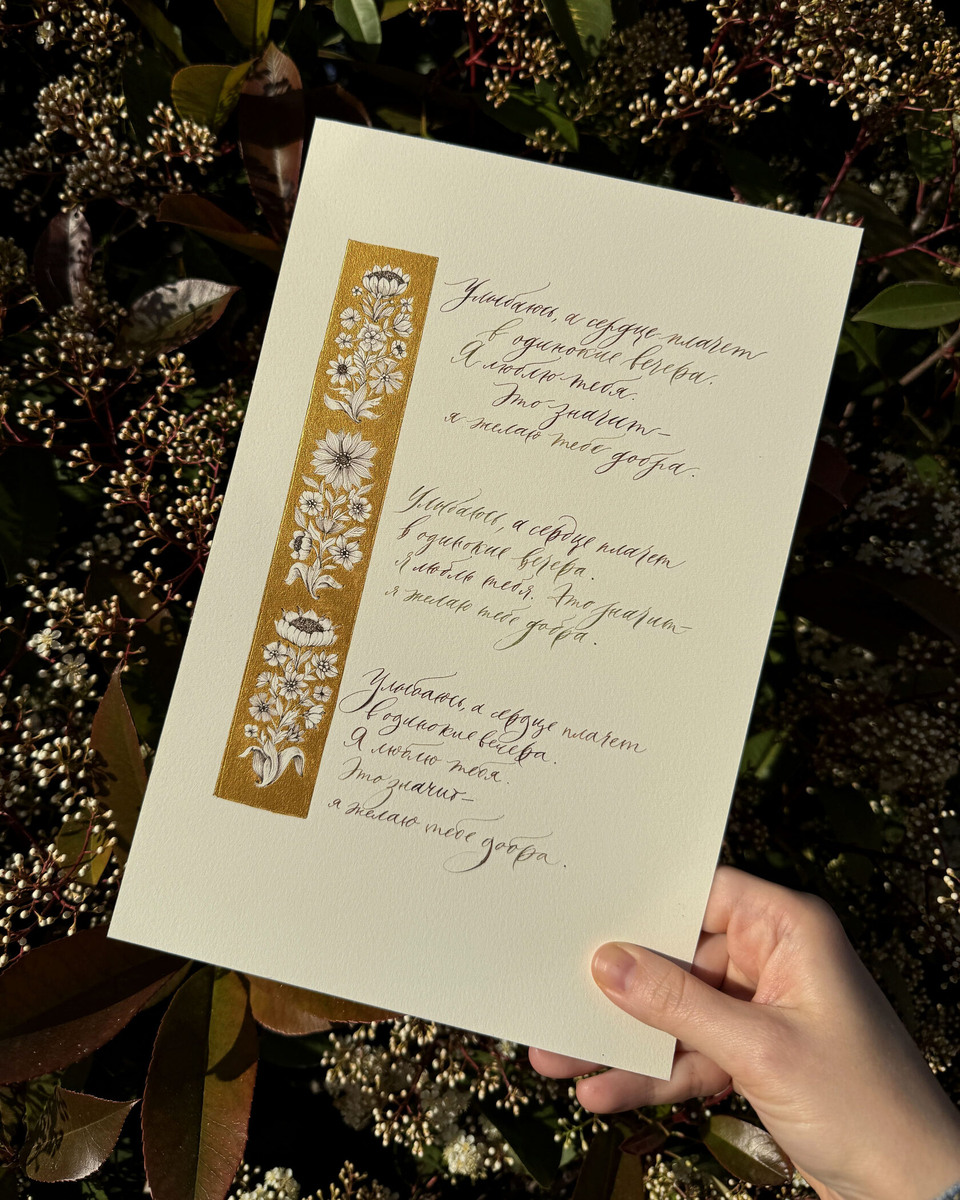 Улыбаюсь, а сердце плачет
в одинокие вечера.
Я люблю тебя.
Это значит –
я желаю тебе добра.
Улыбаюсь, а сердце плачет
в одинокие вечера.
Я люблю тебя. Это значит –
я желаю тебе добра.
Улыбаюсь, а сердце плачет
в одинокие вечера.
Я люблю тебя.
Это значит –
я желаю тебе добра.